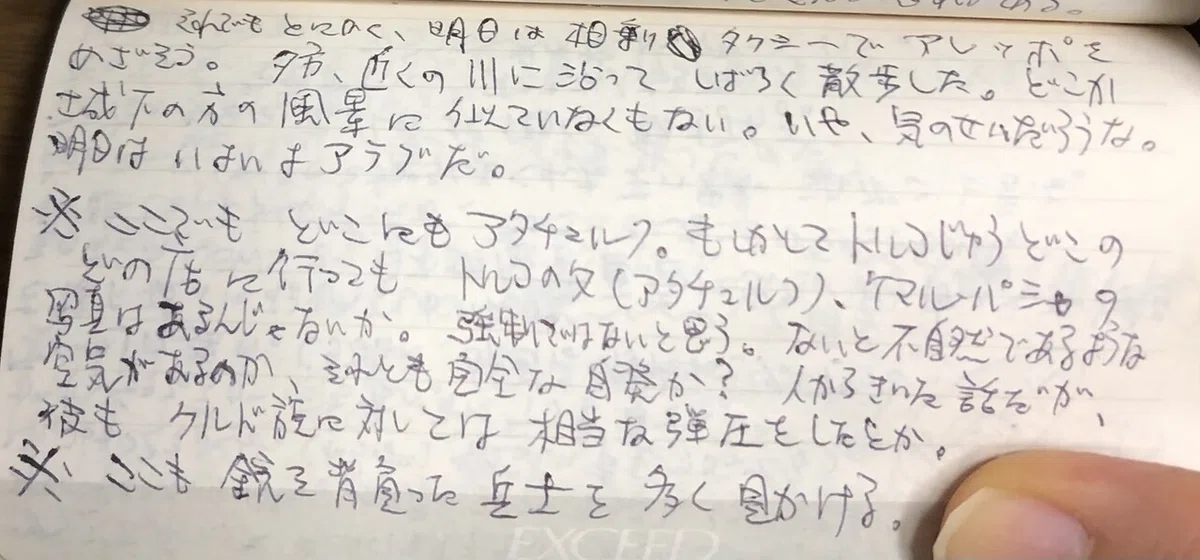 それでもとにかく、明日は相乗りタクシーでアレッポを
めざそう。夕方、近くの川に沿ってしばらく散歩した。どこか
城下の方の風景に似ていなくもない。いや、気のせいだろうな。
明日はいよいよアラブだ。
※ ここでもどこにもアタチュルク。もしかしてトルコじゅうどこの
どの店に行ってもトルコの父(アタチュルク)、ケマル・パシャの
写真はあるんじゃないか。強制ではないと思う。ないと不自然であるような
空気があるのか、それとも完全な自発か? 人からきいた話だが、
彼もクルド族に対しては相当な弾圧をしたとか。
※ ここも銃を背負った兵士を多く見かける。
EXCEED